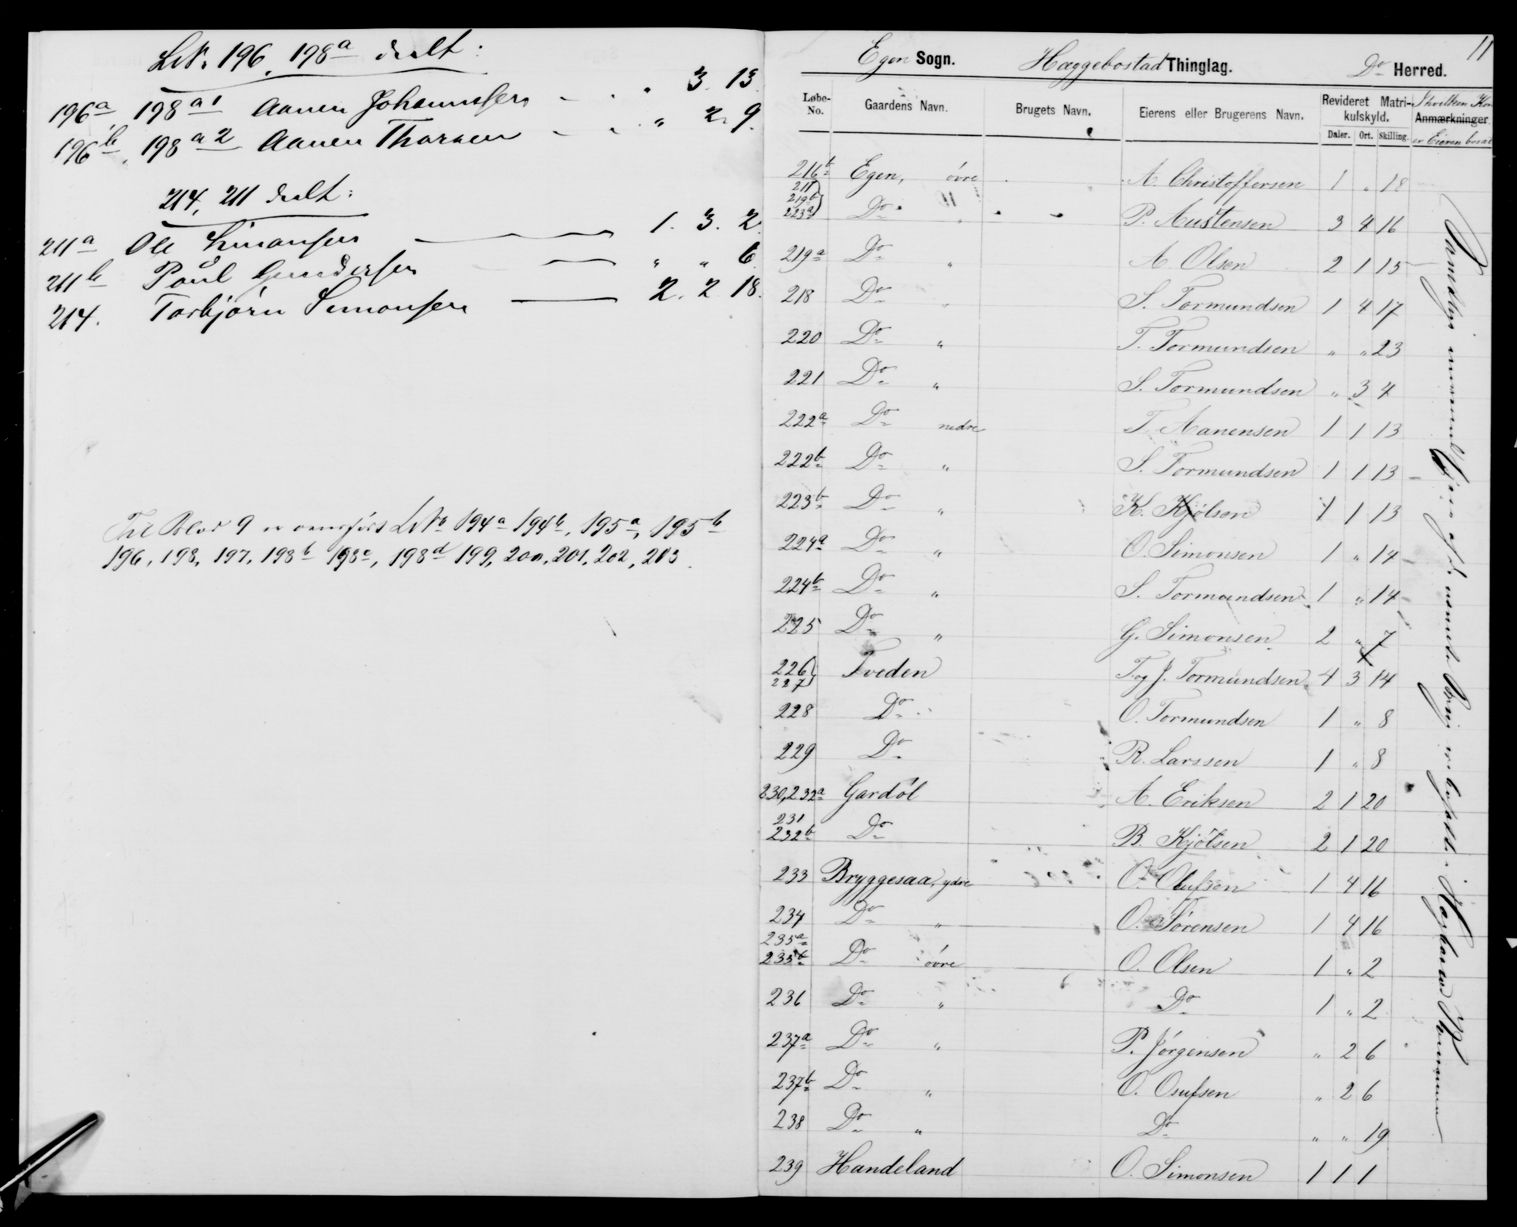 LN. 196, 198a delt:
196a, 198a1 Aanen Johannesen — „ 3. 13.
196b, 198a2 Aanen Thorsen — „ 2. 9.
214, 211 delt:
211a Ole Simonsen — 1. 3. 2.
211b Poul Gundersen — „ „ 6.
214. Torbjørn Simonsen — 2. 2. 18.
Til Blad 9 er LNo 194a 194b, 195a, 195b
196, 198, 197, 198b 198c, 198d 199, 200, 201, 202, 203.
11
Egen Sogn. Hæggebostad Thinglag. Do Herred.
Løbe-No. Gaardens Navn. Brugets Navn. Eierens eller Brugerens Navn. Revideret Matrikulskyld. Anmærkninger
Daler. Ort. Skilling. er Eieren
216b Egen, øvre A. Christoffersen 1 „ 18
217 219b 223a Do „ P. Austensen 3 4 16
219a Do „ A Olsen 2 1 15
218 Do „ S. Tormundsen 1 4 17
220 Do „ T. Tormundsen „ „ 23
221 Do „ S. Tormundsen „ 3 4
222a Do nedre T. Aanensen 1 1 13
222b Do „ S. Tormundsen 1 1 13
223b Do „ K. Kjølson 1 1 13
224a Do „ O. Simonsen 1 „ 14
224b Do „ S. Tormundsen 1 „ 14
225 Do „ G. Simonsen 2 „ 7
226 227 Tveden T. og J. Tormundsen 4 3 14
228 Do O. Tormundsen 1 „ 8
229 Do R. Larssen 1 „ 8
230, 232a Gardøl A. Eriksen 2 1 20
231 232b Do B. Kjølsen 2 1 20
233 Bryggesaa, ydre O. Olufsen 1 4 16
234 Do „ O. Sørensen 1 4 16
235a 235b Do øvre O. Olsen 1 „ 2
236 Do „ Do 1 „ 2
237a Do „ P. Jørgensen „ 2 6
237b Do „ O. Osufsen „ 2 6
238 Do „ Do „ „ 19
239 Handeland O. Simonsen 1 1 1